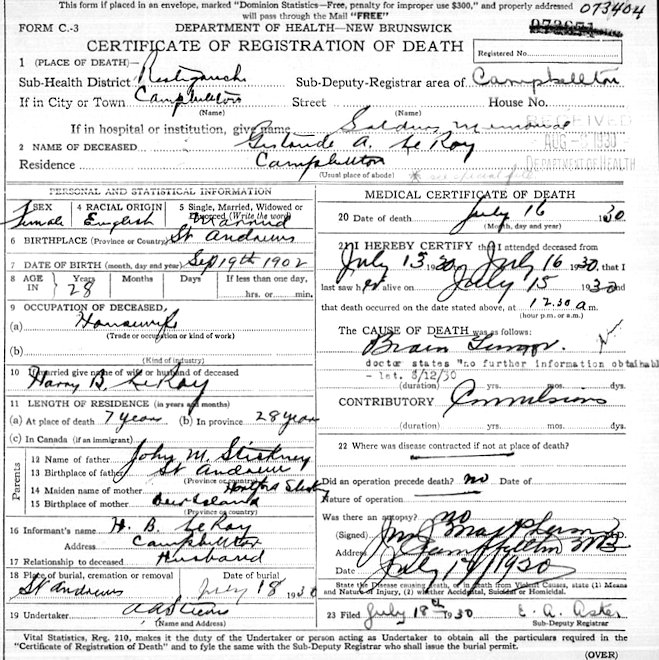 This form if placed in an envelope, marked "Dominion Statistics—Free, penalty for improper use $300," and properly addressed
will pass through the Mail "FREE"
073404
FORM C.-3
DEPARTMENT OF HEALTH—NEW BRUNSWICK
CERTIFICATE OF REGISTRATION OF DEATH
Registered No.
1 (PLACE OF DEATH)—
Sub-Health District Restigouche Sub-Deputy-Registrar area of Campbellton
If in City or Town Campbellton Street House No.
(Name) (Name)
If in hospital or institution, give name Soldiers Memorial
RECEIVED
AUG 1930
DEPARTMENT OF HEALTH
2 NAME OF DECEASED Gertrude A. LeRoy
Residence Campbellton
(Usual place of abode)
PERSONAL AND STATISTICAL INFORMATION
3 SEX 4 RACIAL ORIGIN 5 Single, Married, Widowed or
Divorced (Write the word)
Female English Married
6 BIRTHPLACE (Province or Country) St Andrews
7 DATE OF BIRTH (month, day and year) Sep 19th 1902
8 AGE IN Years Months Days If less than one day,
28 hrs. or min.
9 OCCUPATION OF DECEASED,
(a) Housewife
(Trade or occupation or kind of work)
(b)
(Kind of industry)
10 If married give name of wife or husband of deceased
Harry B. LeRoy
11 LENGTH OF RESIDENCE (in years and months)
(a) At place of death 7 years (b) In province 28 years
(c) In Canada (if an immigrant)
Parents
12 Name of father John M. Stickney
13 Birthplace of father St Andrews
(Province or country)
14 Maiden name of mother
15 Birthplace of mother Deer Island
(Province or country)
16 Informant's name H. B. LeRoy
Address Campbellton
17 Relationship to deceased Husband
18 Place of burial, cremation or removal Date of burial
St Andrews July 18 1930
19 Undertaker
(Name and Address)
MEDICAL CERTIFICATE OF DEATH
20 Date of death July 16 1930
(Month, day and year)
21 I HEREBY CERTIFY that I attended deceased from
July 13 1930 July 16 1930, that I
last saw her alive on July 15 1930 and
that death occurred on the date stated above, at 12.30 a m.
(hour p.m. or a.m.)
The CAUSE OF DEATH was as follows:
Brain Tumor.
doctor states "no further information obtainable
- let. 8/12/30
(duration) yrs. mos. dys.
CONTRIBUTORY Convulsions
(duration) yrs. mos. dys.
22 Where was disease contracted if not at place of death?
Did an operation precede death? no Date of
Nature of operation
Was there an autopsy? no
(Signed) M.D.
Address Campbellton NB
July 17/1930
State the Disease causing death, or in death from Violent Causes, state (1) Means
and Nature of Injury, (2) whether Accidental, Suicidal or Homicidal.
23 Filed July 18th 1930 E. A. Aster
Sub-Deputy Registrar
Vital Statistics, Reg. 210, makes it the duty of the Undertaker or person acting as Undertaker to obtain all the particulars required in the
"Certificate of Registration of Death" and to fyle the same with the Sub-Deputy Registrar who shall issue the burial permit.
(OVER)